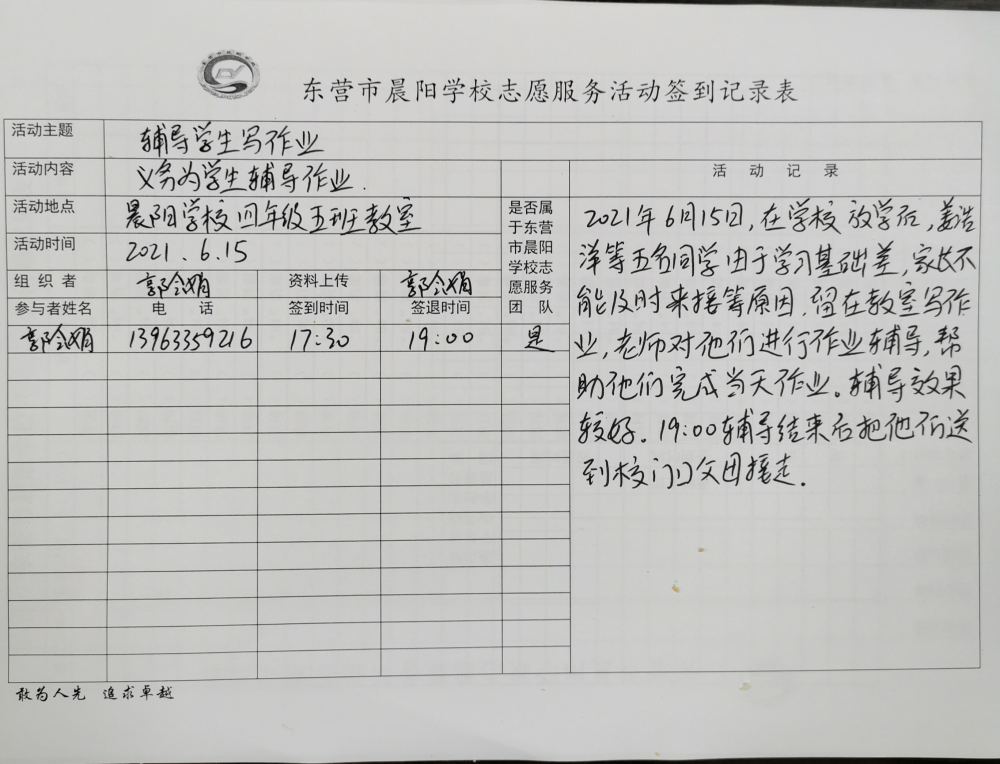 东营市晨阳学校志愿服务活动签到记录表
活动主题 辅导学生写作业
活动内容 义务为学生辅导作业.
活动地点 晨阳学校四年级五班教室
活动时间 2021.6.15
组织者 郭令娟 资料上传 郭令娟
参与者姓名 电话 签到时间 签退时间
是否属
于东营
市晨阳
学校志
愿服务
团队
郭令娟 13963359216 17:30 19:00 是
活动记录
2021年6月15日,在学校放学后,姜浩
洋等五名同学由于学习基础差,家长不
能及时来接等原因,留在教室写作
业,老师对他们进行作业辅导,帮
助他们完成当天作业。辅导效果
较好.19:00辅导结束后把他们送
到校门口父母接走.
敢为人先 追求卓越